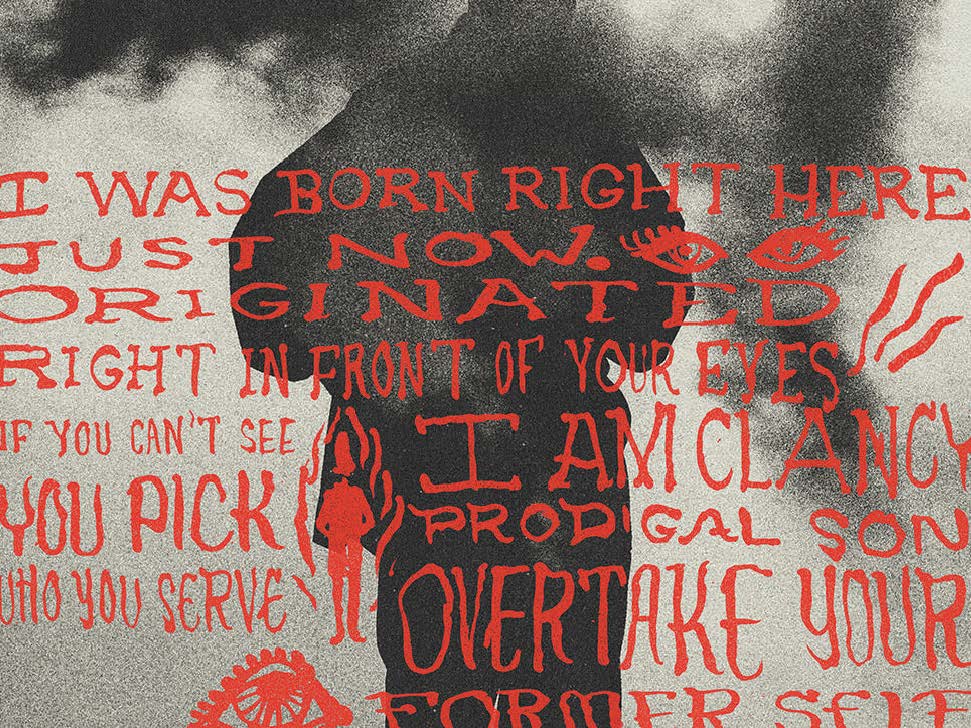 I WAS BORN RIGHT HERE
JUST NOW.
ORIGINATED
RIGHT IN FRONT OF YOUR EYES
IF YOU CAN'T SEE
YOU PICK
WHO YOU SERVE
I AM CLANCY
PRODIGAL SON
OVERTAKE YOUR
FORMER SELF